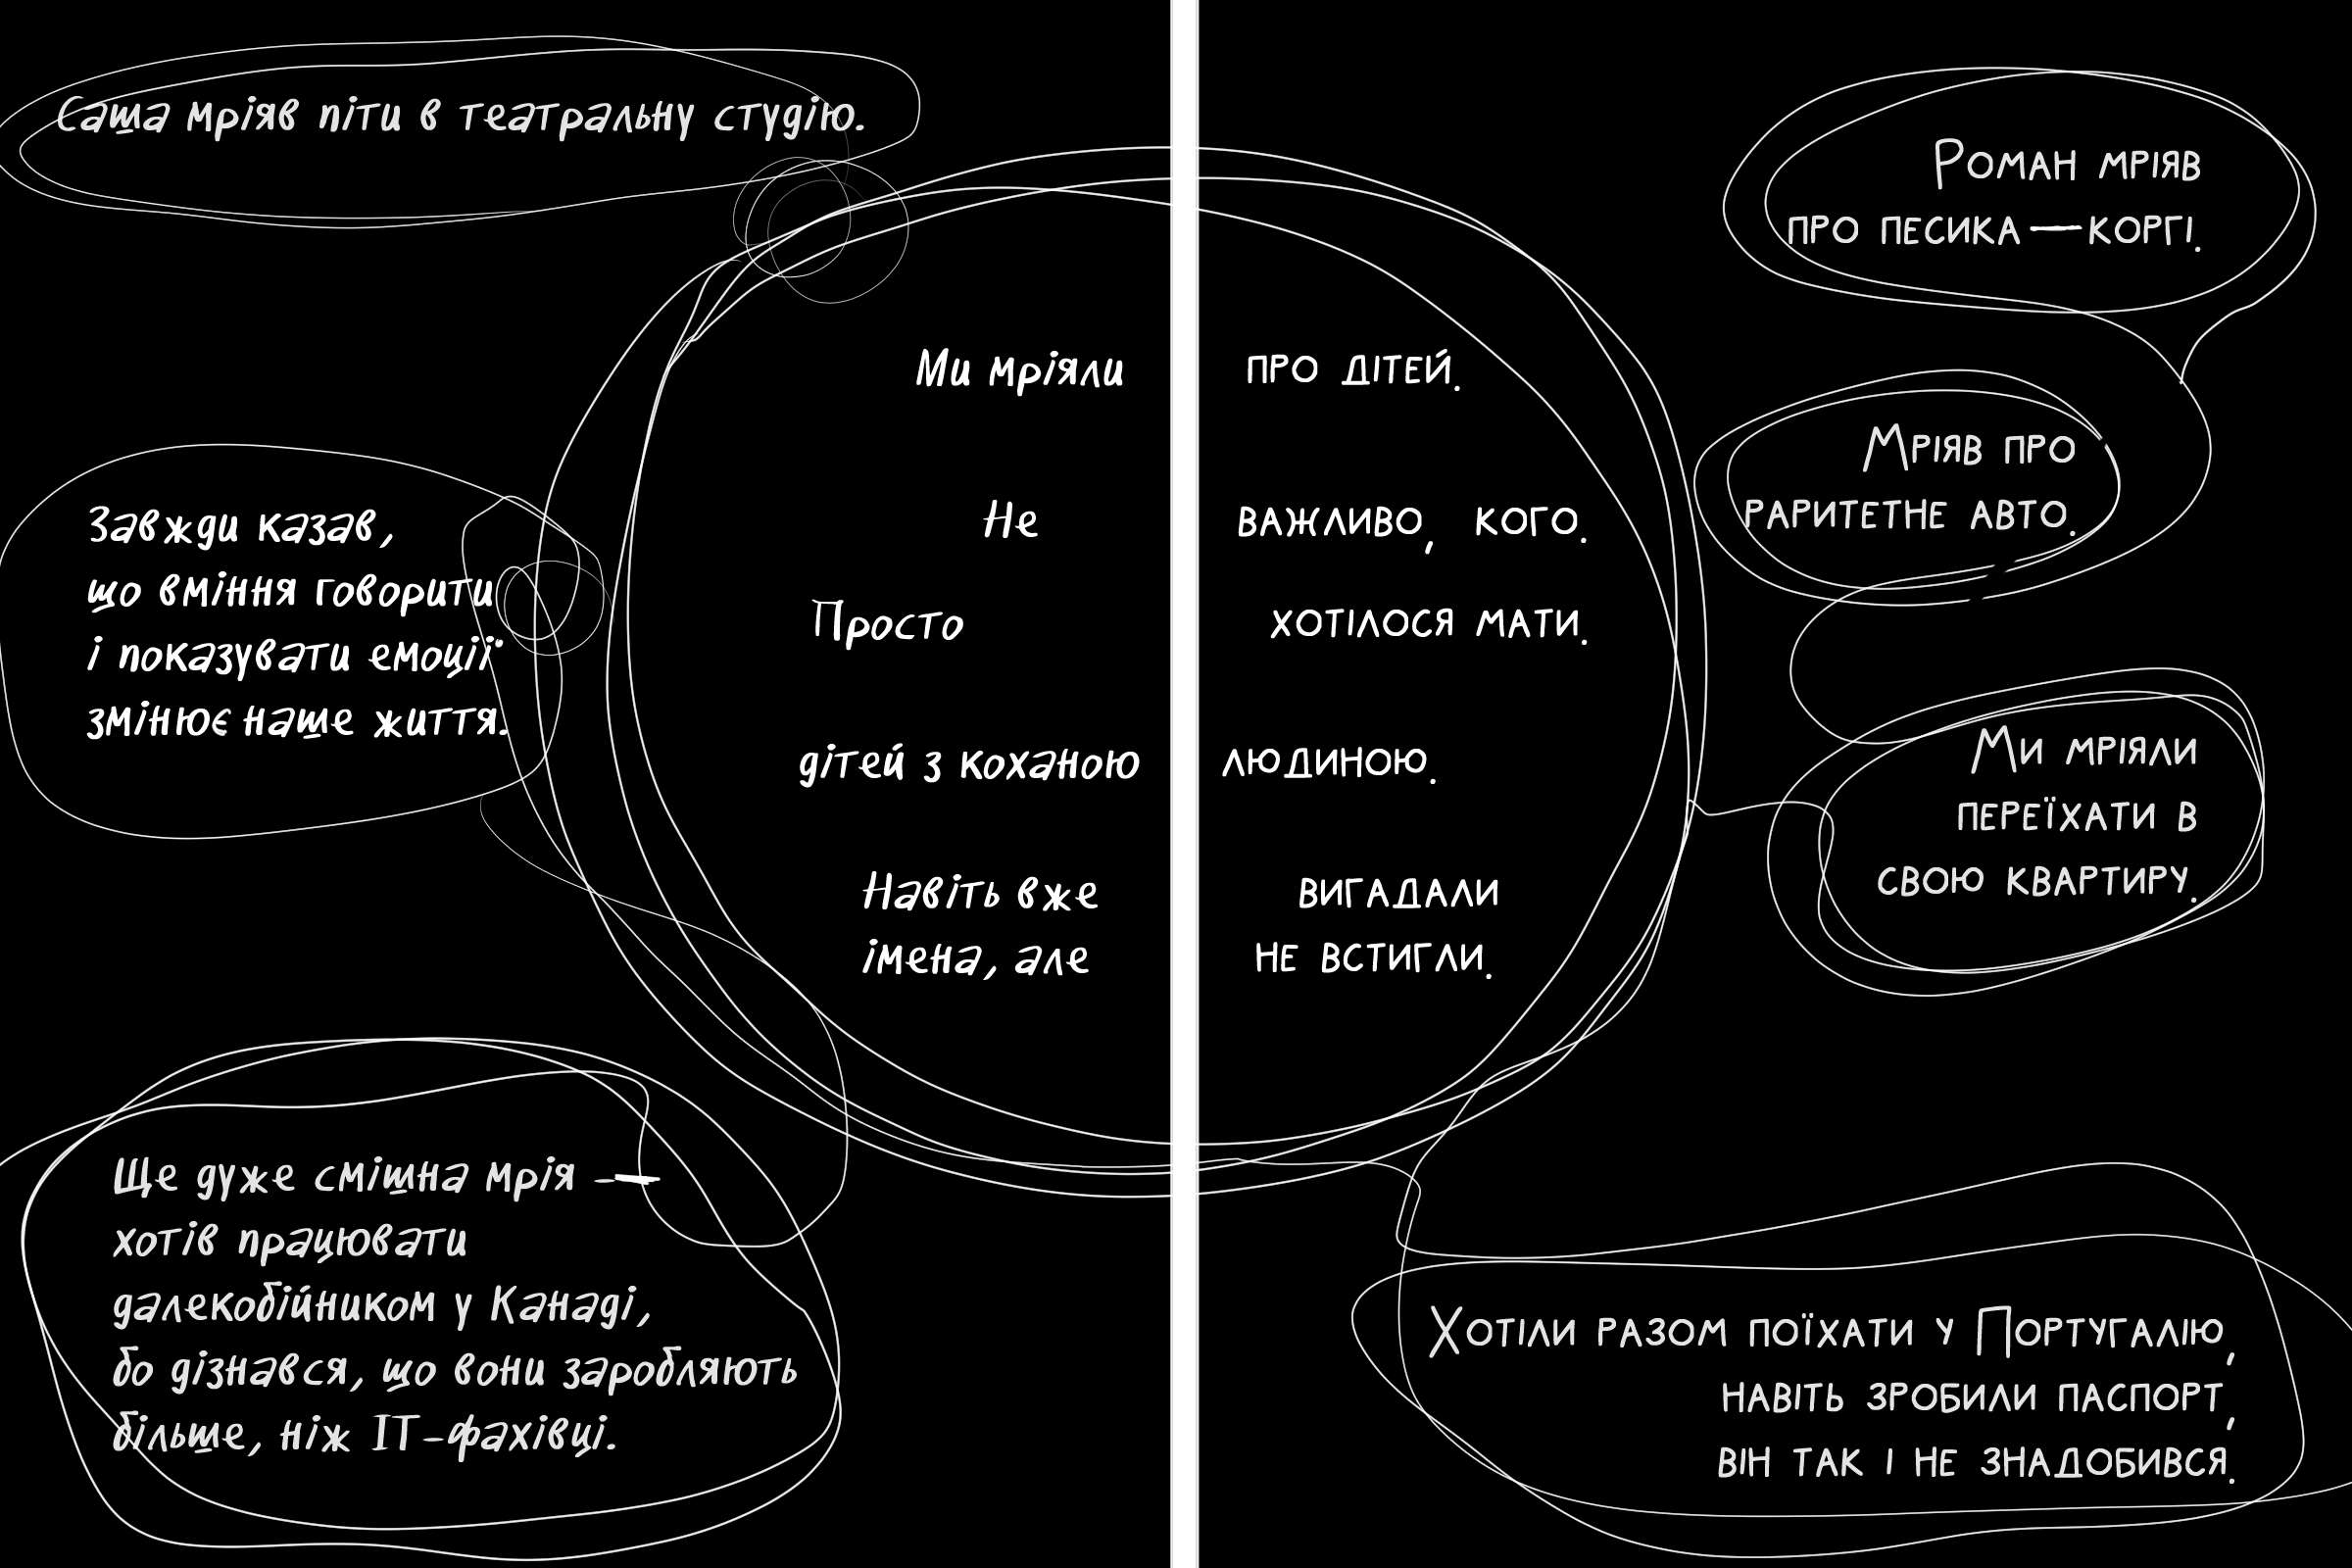 Саша мріяв піти в театральну студію.
Завжди казав,
що вміння говорити
і показувати емоції
змінює наше життя.
Ще дуже смішна мрія —
хотів працювати
далекобійником у Канаді,
бо дізнався, що вони заробляють
більше, ніж ІТ-фахівці.
Ми мріяли про дітей.
Не важливо, кого.
Просто хотілося мати.
дітей з коханою людиною.
Навіть вже вигадали
імена, але не встигли.
Роман мріяв
про песика — коргі.
Мріяв про
раритетне авто.
Ми мріяли
переїхати в
свою квартиру.
Хотіли разом поїхати у Португалію,
навіть зробили паспорт,
він так і не знадобився.